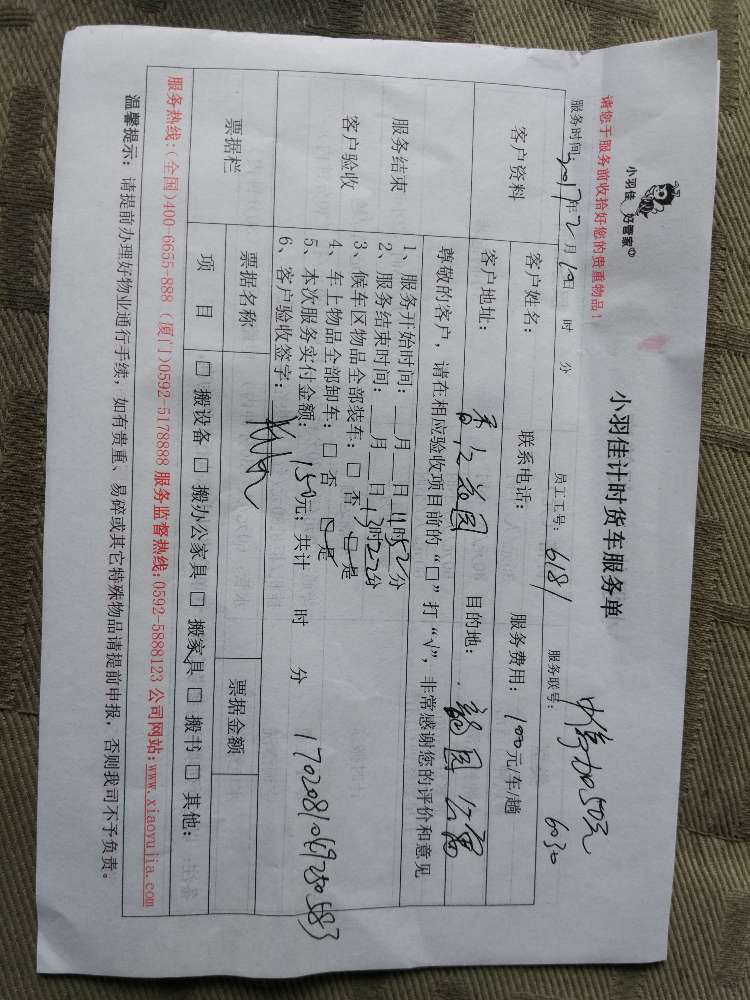 小羽佳 好管家
小羽佳计时货车服务单
请您于服务前收拾好您的贵重物品!
中停加50元
服务时间: 2017年2月10日 时 分 员工工号: 6181 服务联号: 6030
客户资料
客户姓名: 联系电话: 服务费用: 100元/车/趟
客户地址: 目的地: 韶园公寓
尊敬的客户,请在相应验收项目前的“□”打“√”,非常感谢您的评价和意见
服务结束
客户验收
1、服务开始时间: 月 日11时52分
2、服务结束时间: 月 日13时22分
3、候车区物品全部装车:□ 否 □ 是
4、车上物品全部卸车:□ 否 □ 是
5、本次服务实付金额: 150元; 共计 时 分
6、客户验收签字:
票据栏
票据名称 票据金额
项 目 □ 搬设备 □ 搬办公家具 □ 搬家具 □ 搬书 □ 其他:
服务热线:(全国)400-6655-888 (厦门)0592-5178888 服务监督热线:0592-5888123 公司网站:www.xiaoyujia.com
温馨提示: 请提前办理好物业通行手续,如有贵重、易碎或其它特殊物品请提前申报,否则我司不予负责。